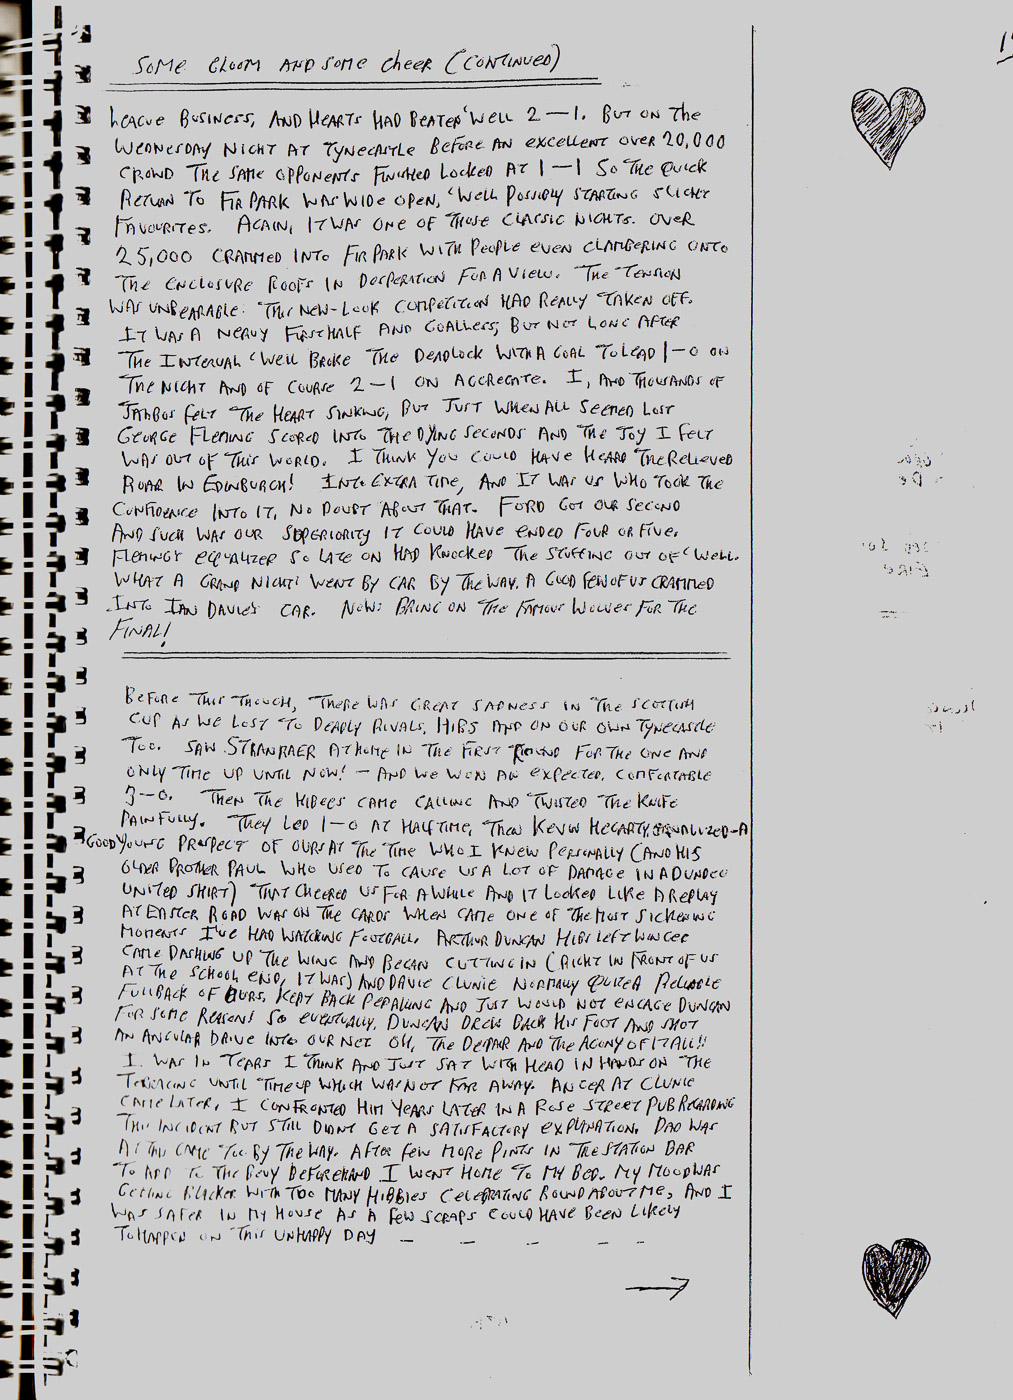 SOME GLOOM AND SOME CHEER (CONTINUED)
LEAGUE BUSINESS, AND HEARTS HAD BEATEN 'WELL 2—1. BUT ON THE
WEDNESDAY NIGHT AT TYNECASTLE BEFORE AN EXCELLENT OVER 20,000
CROWD THE SAME OPPONENTS FINISHED LOCKED AT 1—1 SO THE QUICK
RETURN TO FIR PARK WAS WIDE OPEN, 'WELL POSSIBLY STARTING SLIGHT
FAVOURITES. AGAIN, IT WAS ONE OF THOSE CLASSIC NIGHTS. OVER
25,000 CRAMMED INTO FIR PARK WITH PEOPLE EVEN CLAMBERING ONTO
THE ENCLOSURE ROOFS IN DESPERATION FOR A VIEW. THE TENSION
WAS UNBEARABLE. THIS NEW-LOOK COMPETITION HAD REALLY TAKEN OFF.
IT WAS A NERVY FIRST HALF AND GOALLESS, BUT NOT LONG AFTER
THE INTERVAL 'WELL BROKE THE DEADLOCK WITH A GOAL TO LEAD 1—0 ON
THE NIGHT AND OF COURSE 2—1 ON AGGREGATE. I, AND THOUSANDS OF
JAMBOS FELT THE HEART SINKING, BUT JUST WHEN ALL SEEMED LOST
GEORGE FLEMING SCORED INTO THE DYING SECONDS AND THE JOY I FELT
WAS OUT OF THIS WORLD. I THINK YOU COULD HAVE HEARD THE RELIEVED
ROAR IN EDINBURGH! INTO EXTRA TIME, AND IT WAS US WHO TOOK THE
CONFIDENCE INTO IT, NO DOUBT ABOUT THAT. FORD GOT OUR SECOND
AND SUCH WAS OUR SUPERIORITY IT COULD HAVE ENDED FOUR OR FIVE.
FLEMING'S EQUALIZER SO LATE ON HAD KNOCKED THE STUFFING OUT OF 'WELL.
WHAT A GRAND NIGHT! WENT BY CAR BY THE WAY. A GOOD FEW OF US CRAMMED
INTO IAN DAVIE'S CAR. NOW: BRING ON THE FAMOUS WOLVES FOR THE
FINAL!
BEFORE THIS THOUGH, THERE WAS GREAT SADNESS IN THE SCOTTISH
CUP AS WE LOST TO DEADLY RIVALS, HIBS AND ON OUR OWN TYNECASTLE
TOO. SAW STRANRAER AT HOME IN THE FIRST ROUND FOR THE ONE AND
ONLY TIME UP UNTIL NOW! — AND WE WON AN EXPECTED, COMFORTABLE
3—0. THEN THE HIBEES CAME CALLING AND TWISTED THE KNIFE
PAINFULLY. THEY LED 1—0 AT HALF TIME, THEN KEVIN HEGARTY EQUALIZED-A
GOOD YOUNG PROSPECT OF OURS AT THE TIME WHO I KNEW PERSONALLY (AND HIS
OLDER BROTHER PAUL WHO USED TO CAUSE US A LOT OF DAMAGE IN A DUNDEE
UNITED SHIRT) THAT CHEERED US FOR A WHILE AND IT LOOKED LIKE A REPLAY
AT EASTER ROAD WAS ON THE CARDS WHEN CAME ONE OF THE MOST SICKENING
MOMENTS I'VE HAD WATCHING FOOTBALL. ARTHUR DUNCAN HIBS LEFT WINGER
CAME DASHING UP THE WING AND BEGAN CUTTING IN (RIGHT IN FRONT OF US
AT THE SCHOOL END, IT WAS) AND DAVIE CLUNIE NORMALLY QUITE A RELIABLE
FULLBACK OF OURS, KEPT BACK PEDALLING AND JUST WOULD NOT ENGAGE DUNCAN
FOR SOME REASONS SO EVENTUALLY, DUNCAN DREW BACK HIS FOOT AND SHOT
AN ANGULAR DRIVE INTO OUR NET OH, THE DESPAIR AND THE AGONY OF IT ALL!!
I WAS IN TEARS I THINK AND JUST SAT WITH HEAD IN HANDS ON THE
TERRACING UNTIL TIME UP WHICH WAS NOT FAR AWAY. ANGER AT CLUNIE
CAME LATER, I CONFRONTED HIM YEARS LATER IN A ROSE STREET PUB REGARDING
THIS INCIDENT BUT STILL DIDNT GET A SATISFACTORY EXPLANATION. DAD WAS
AT THIS GAME TOO BY THE WAY. AFTER FEW MORE PINTS IN THE STATION BAR
TO ADD TO THE BEVY BEFOREHAND I WENT HOME TO MY BED. MY MOOD WAS
GETTING BLACKER WITH TOO MANY HIBBIES CELEBRATING ROUND ABOUT ME, AND I
WAS SAFER IN MY HOUSE AS A FEW SCRAPS COULD HAVE BEEN LIKELY
TO HAPPEN ON THIS UNHAPPY DAY — — — — —